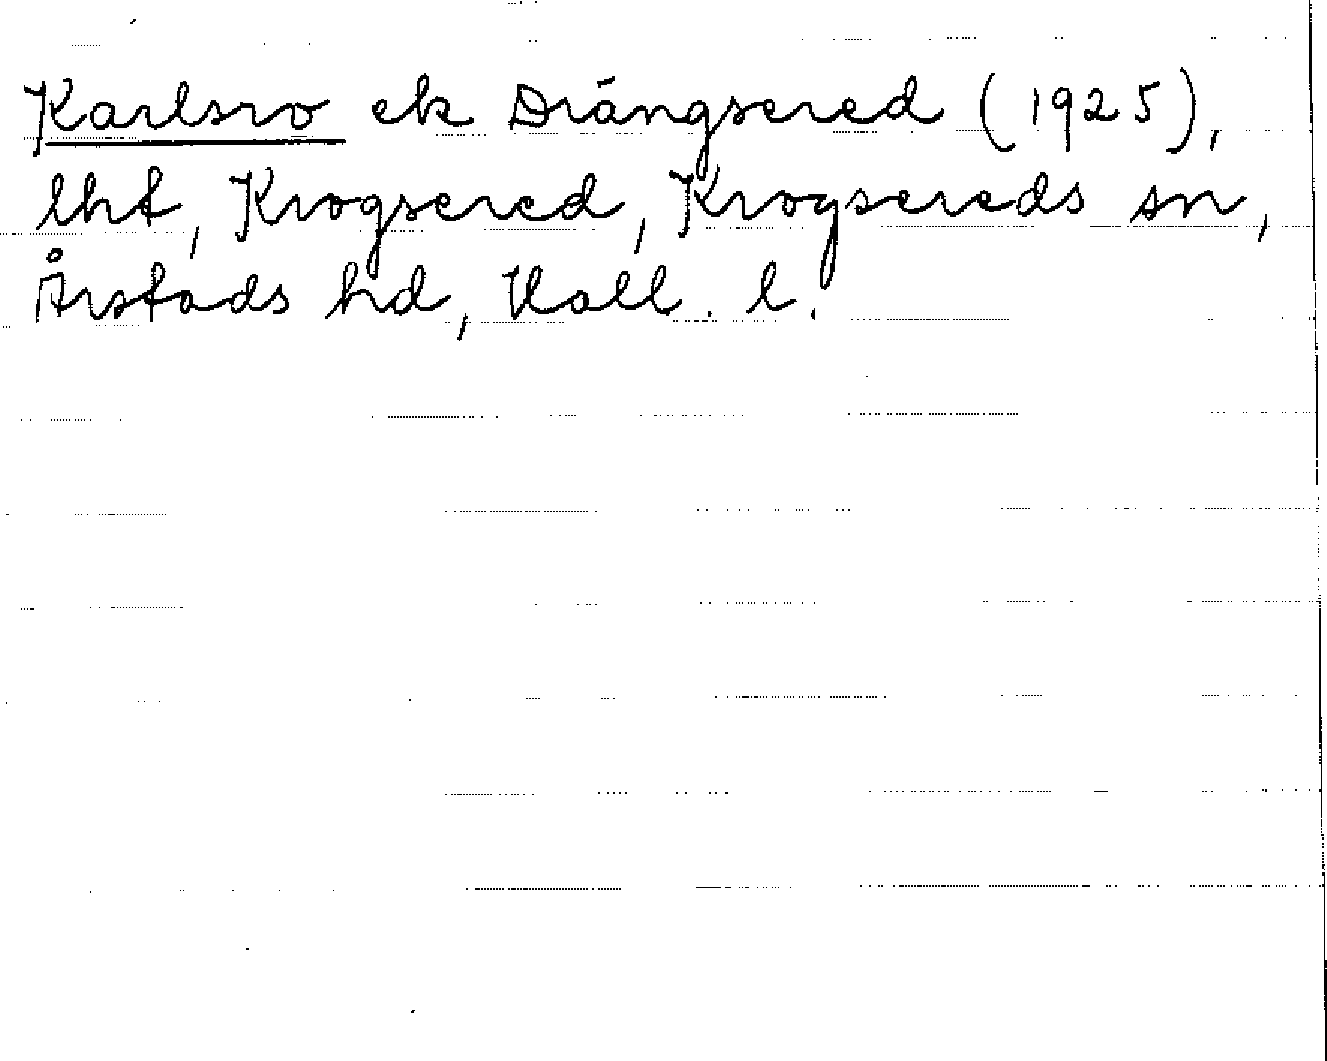 Karlsro ek Drängsered (1925),
lht, Krogsered, Krogsereds sn,
Årstads hd, Hall. l.